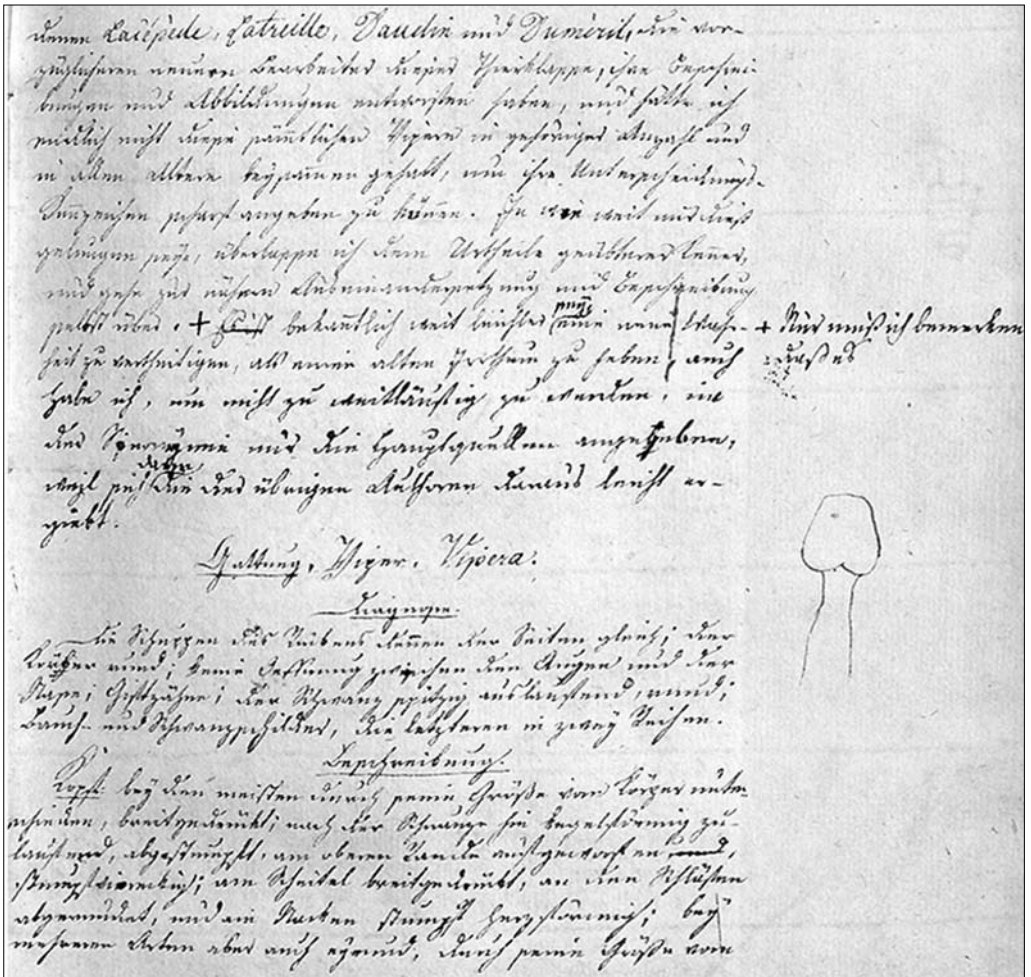 denen Lacépède, Latreille, Daudin und Duméril, die vor-
züglicheren neuern Bearbeiter dieser Thierklasse, ihre Beschrei-
bungen und Abbildungen entworfen haben, und hätte ich
endlich nicht diese sämmtlichen Vipern in gehöriger Anzahl und
in allen Altern beysammen gehabt, um ihre Unterscheidungs-
Kennzeichen scharf angeben zu können. In wie weit mir dieß
gelungen seye, überlasse ich dem Urtheile geübterer Kenner,
und gehe zur nähern Auseinandersetzung und Beschreibung
selbst über. + bekanntlich weit leichter eine neue Wahr- + Nur muß ich bemerken
heit zu vertheidigen, als einen alten Irrthum zu heben, auch daß es
habe ich, um nicht zu weitläufig zu werden, in
der Synonymie nur die Hauptquellen angegeben,
weil sich dann die der übrigen Authoren daraus leicht er-
giebt.
Gattung, Viper. Vipera.
Diagnose.
Die Schuppen des Rückens denen der Seiten gleich; der
Körper rund; keine Oeffnung zwischen den Augen und der
Nase; Giftzähne; der Schwanz spitzig auslaufend, rund;
Bauch- und Schwanzschilder, die letzteren in zwey Reihen.
Beschreibung.
Kopf: bey den meisten durch seine Größe vom Körper unter-
schieden, breitgedrückt; nach der Schnauze hin kegelförmig zu-
laufend, abgestumpft, am oberen Rande aufgeworfen und,
stumpfviereckig; am Scheitel breitgedrückt, an den Schläfen
abgerundet, und am Nacken stumpf herzförmig; bey
mehreren Arten aber auch eyrund, durch seine Größe vom